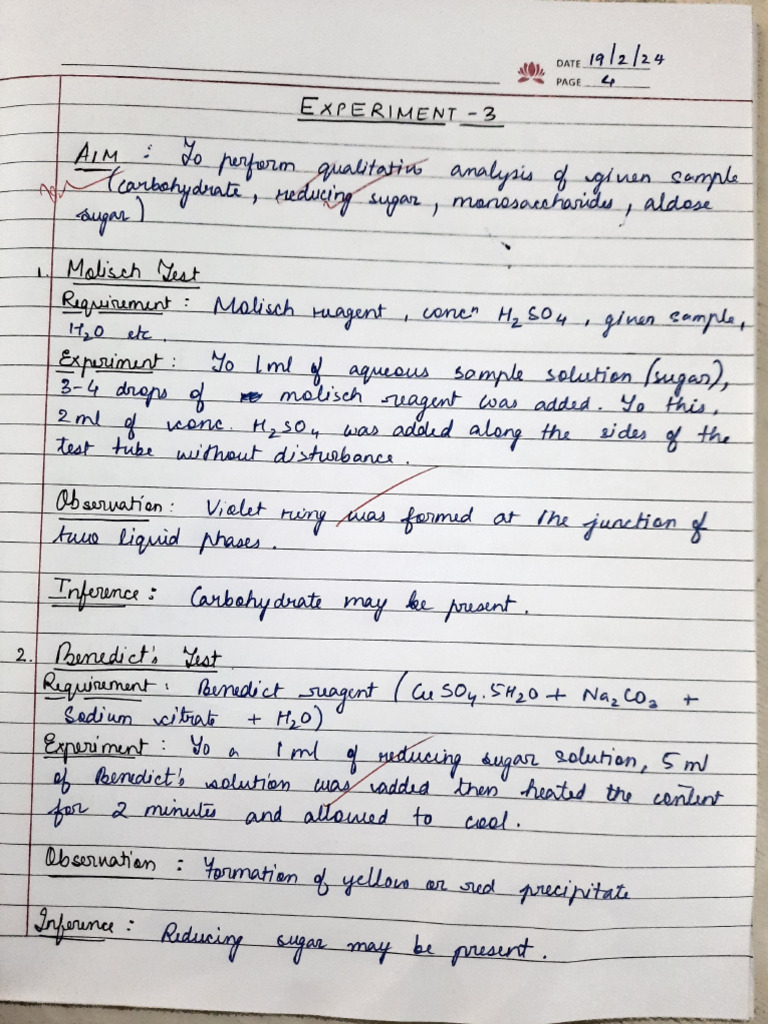 DATE 19/2/24
PAGE 4
EXPERIMENT - 3
AIM : To perform qualitative analysis of given sample
(carbohydrate, reducing sugar, monosaccharides, aldose
sugar)
1. Molisch Test
Requirement : Molisch reagent, concn H2SO4, given sample,
H2O etc.
Experiment : To 1ml of aqueous sample solution (sugar),
3-4 drops of molisch reagent was added. To this,
2ml of conc. H2SO4 was added along the sides of the
test tube without disturbance.
Observation : Violet ring was formed at the junction of
two liquid phases.
Inference : Carbohydrate may be present.
2. Benedict's Test
Requirement : Benedict reagent (CuSO4.5H2O + Na2CO3 +
Sodium citrate + H2O)
Experiment : To a 1ml of reducing sugar solution, 5 ml
of Benedict's solution was added then heated the content
for 2 minutes and allowed to cool.
Observation : Formation of yellow or red precipitate
Inference : Reducing sugar may be present.